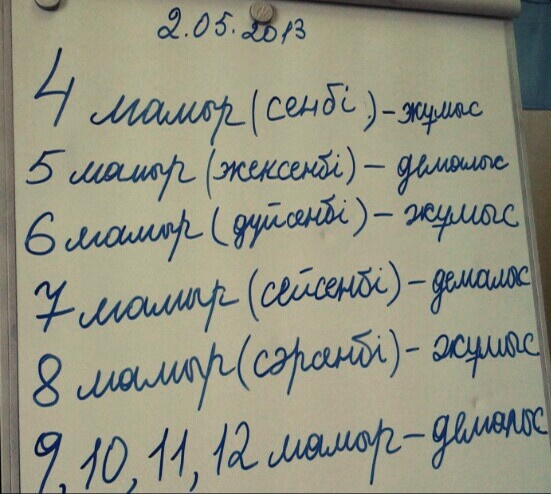 2.05.2013
4 мамыр (сенбі) - жұмыс
5 мамыр (жексенбі) - демалыс
6 мамыр (дүйсенбі) - жұмыс
7 мамыр (сейсенбі) - демалыс
8 мамыр (сәрсенбі) - жұмыс
9, 10, 11, 12 мамыр - демалыс